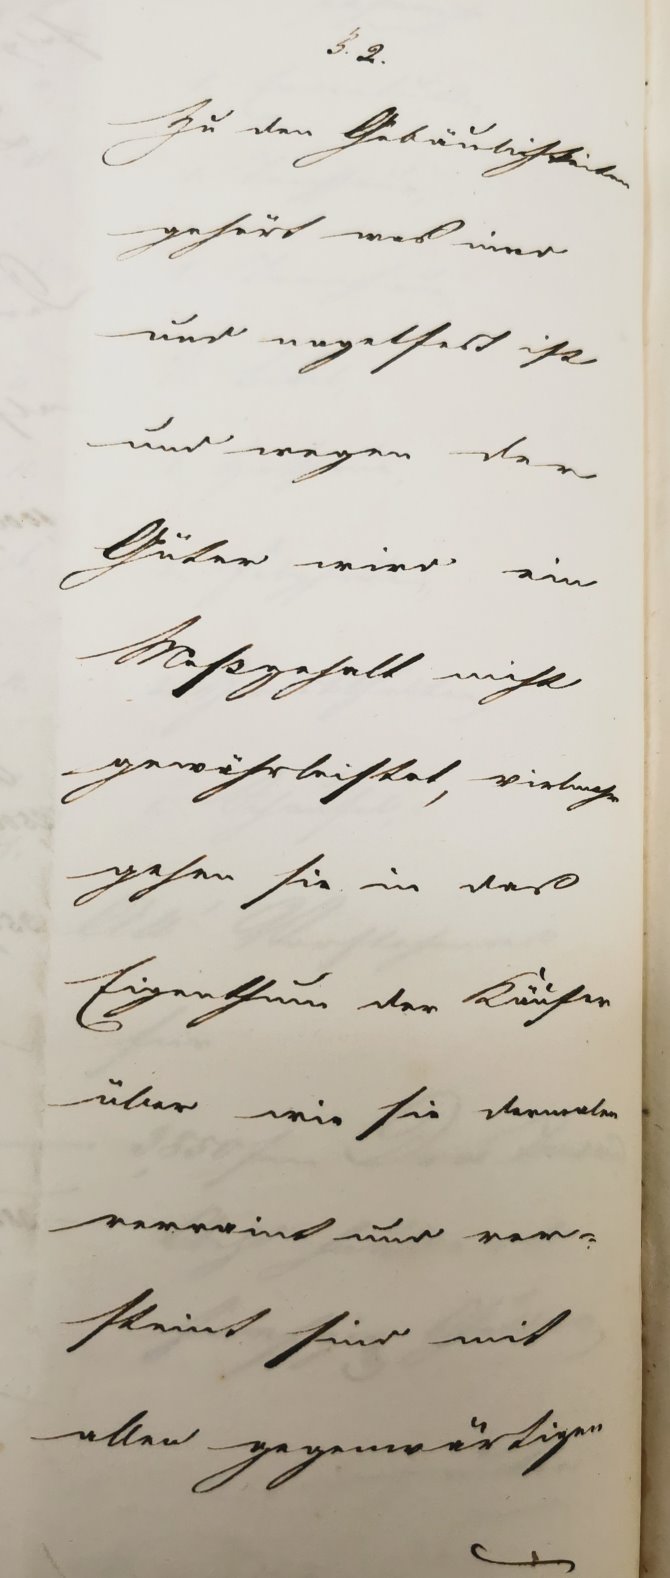 §. 2.
Zu den Gebäulichkeiten
gehört was nied
und nagelfest ist
und wegen der
Güter wird ein
Meßgehalt nicht
gewährleistet, vielmehr
gehen sie in das
Eigenthum der Käufer
über wie sie dermalen
verraint und ver=
steint sind mit
allen gegenwärtigen